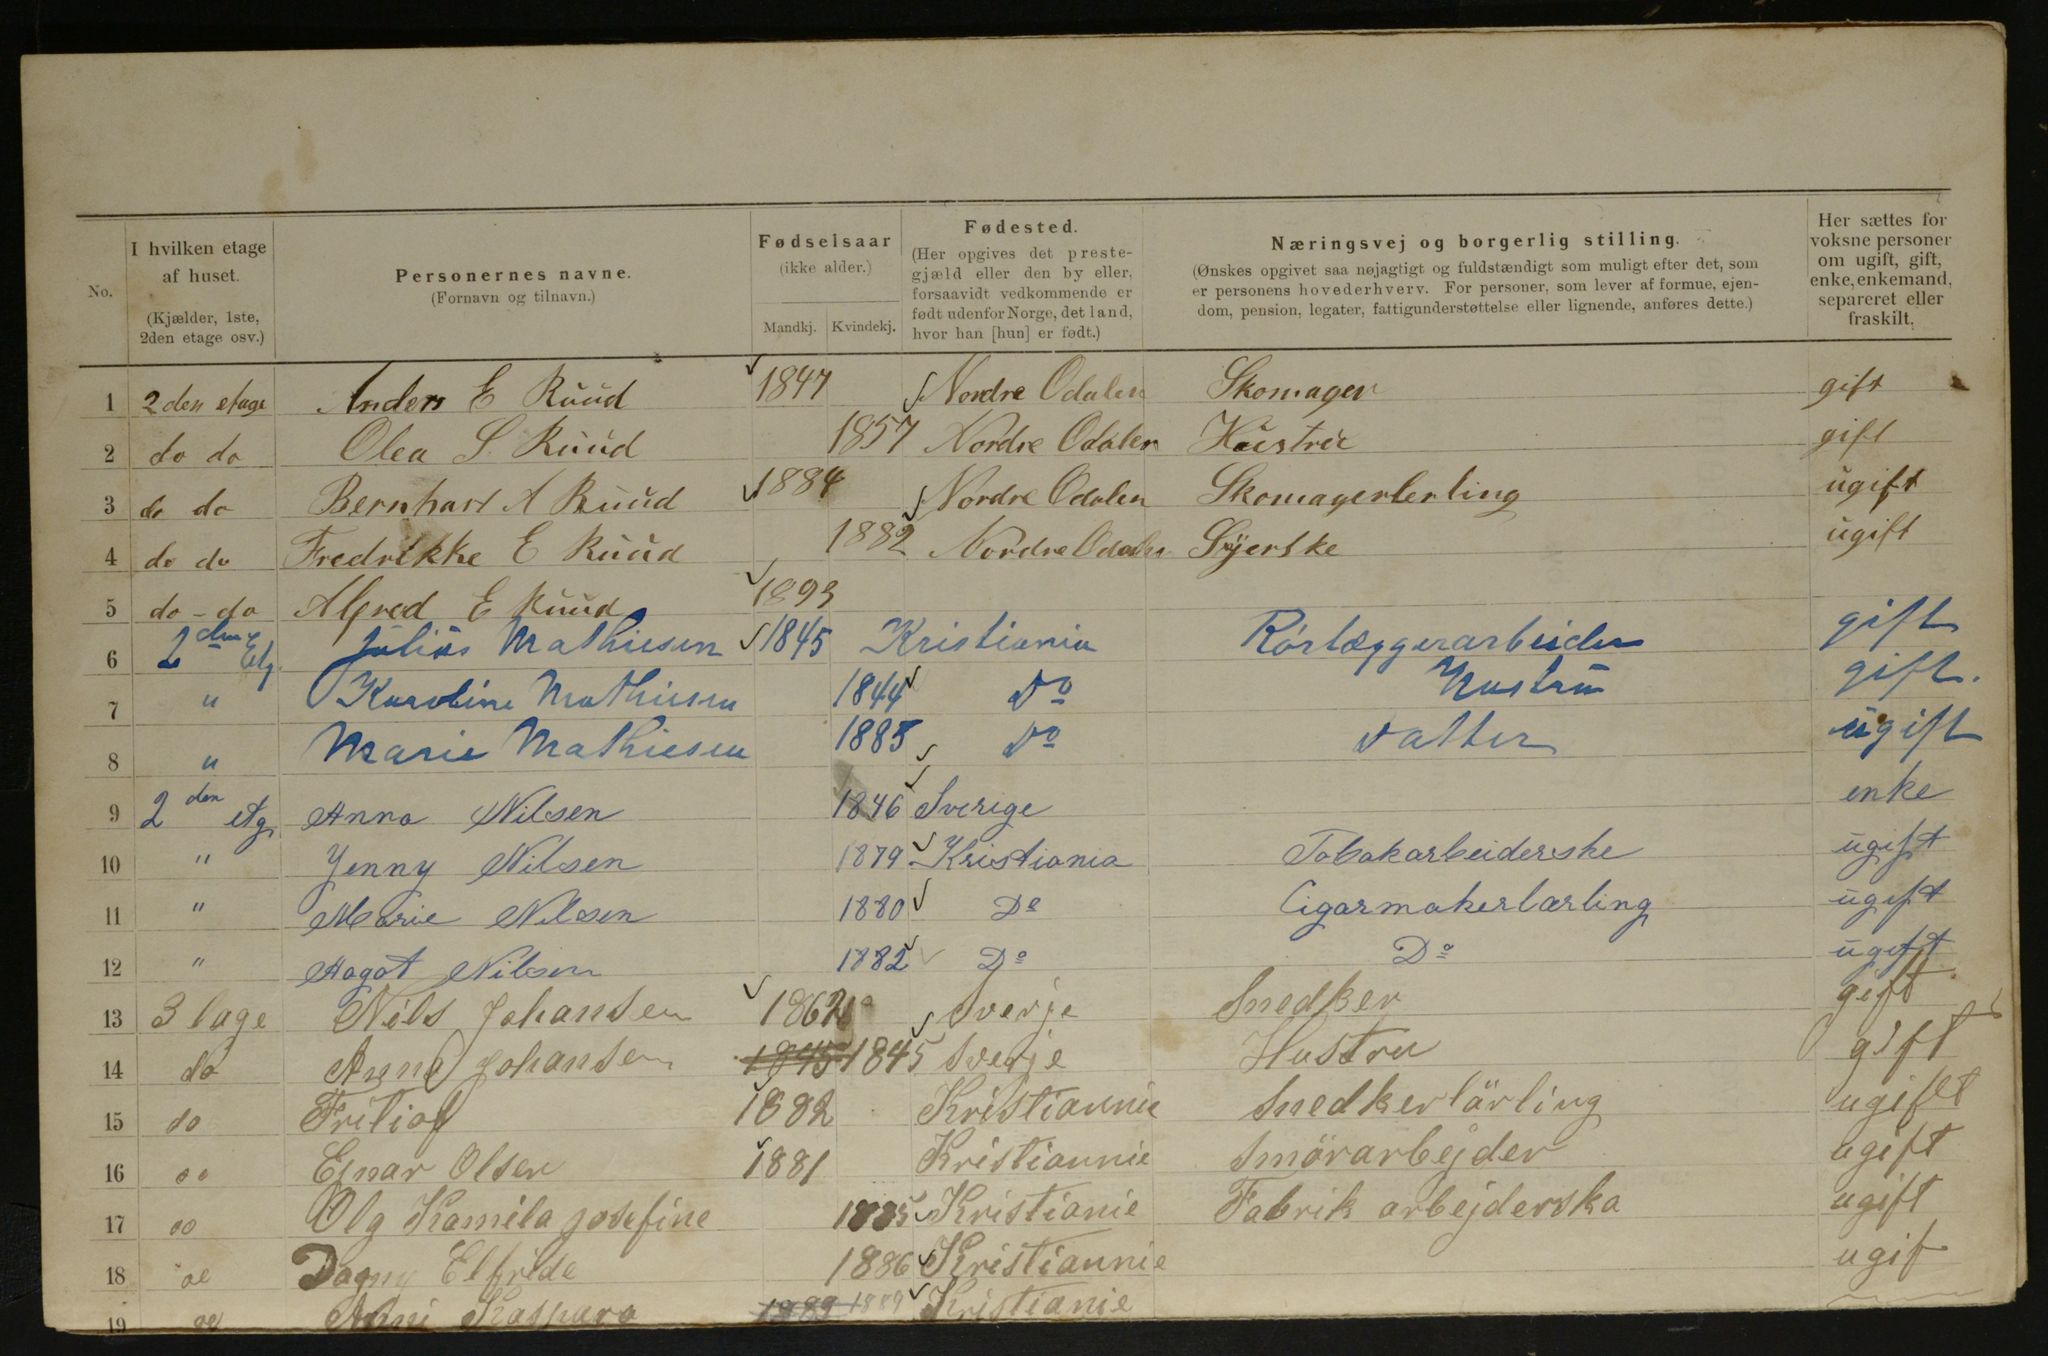 No.
I hvilken etage af huset.
(Kjælder, 1ste, 2den etage osv.)
Personernes navne.
(Fornavn og tilnavn.)
Fødselsaar
(ikke alder.)
Mandkj. Kvindekj.
Fødested.
(Her opgives det prestegjæld eller den by eller, forsaavidt vedkommende er født udenfor Norge, det land, hvor han [hun] er født.)
Næringsvej og borgerlig stilling.
(Ønskes opgivet saa nøjagtigt og fuldstændigt som muligt efter det, som er personens hovederhverv. For personer, som lever af formue, ejendom, pension, legater, fattigunderstøttelse eller lignende, anføres dette.)
Her sættes for voksne personer om ugift, gift, enke, enkemand, separeret eller fraskilt.
1 2 den etage Anders E Ruud 1847 Nordre Odalen Skomager gift
2 do do Olea S. Ruud 1857 Nordre Odalen Hustru gift
3 do do Bernhart A Ruud 1884 Nordre Odalen Skomagerlerling ugift
4 do do Fredrikke E Ruud 1882 Nordre Odalen Syerske ugift
5 do - do Alfred E Ruud 1893
6 2 den Etg. Julius Mathiesen 1845 Kristiania Rörlæggerarbeider gift
7 " Karoline Mathiesen 1844 Do Hustru gift.
8 " Marie Mathiesen 1885 Do datter ugift
9 2 den etg. Anna Nilsen 1846 Sverige enke
10 " Jenny Nilsen 1879 Kristiania Tobakarbeiderske ugift
11 " Marie Nilsen 1880 Do Cigarmakerlærling ugift
12 " Aagot Nilsen 1882 Do Do ugift
13 3 tage Nils Johansen 1862 Sverje Snedker gift
14 do Anna Johansen 1845 1845 Sverje Hustru gift
15 do Fritiof 1882 Kristiannie Snedkerlärling ugift
16 do Ejnar Olsen 1881 Kristiannie Smörarbejder ugift
17 do Olg Kamila Josefine 1885 Kristianie Fabrik arbejderska ugift
18 do Dagny Elfride 1886 Kristiannie ugif
19 do Kaspara 1889 1889 Kristianie